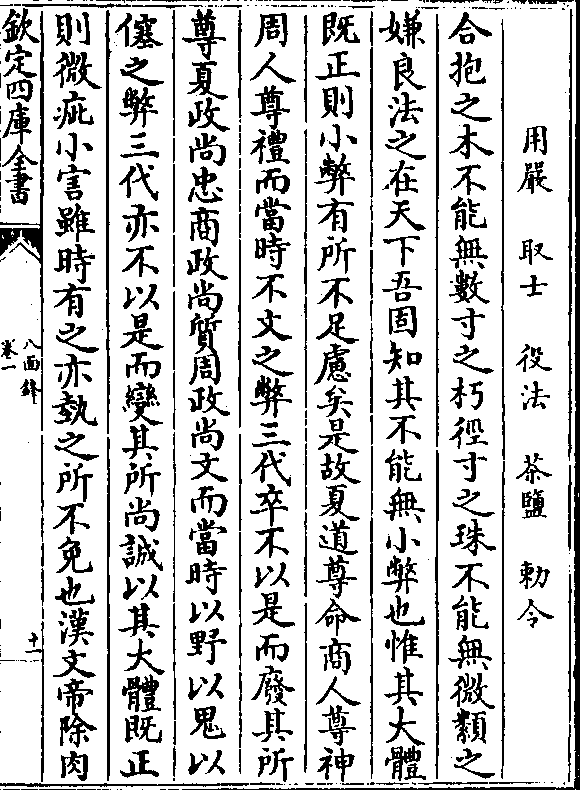 用嚴　取士　役法　茶鹽　勅令
合抱之木不能無數寸之朽徑寸之珠不能無微纇之
嫌良法之在天下吾固知其不能無小弊也惟其大體
既正則小弊有所不足慮矣是故夏道尊命商人尊神
周人尊禮而當時不文之弊三代卒不以是而廢其所
尊夏政尚忠商政尚質周政尚文而當時以野以鬼以
僿之弊三代亦不以是而變其所尚誠以其大體既正
則微疵小害雖時有之亦埶之所不免也漢文帝除肉
欽定四庫全書
八面鋒
卷一
十一